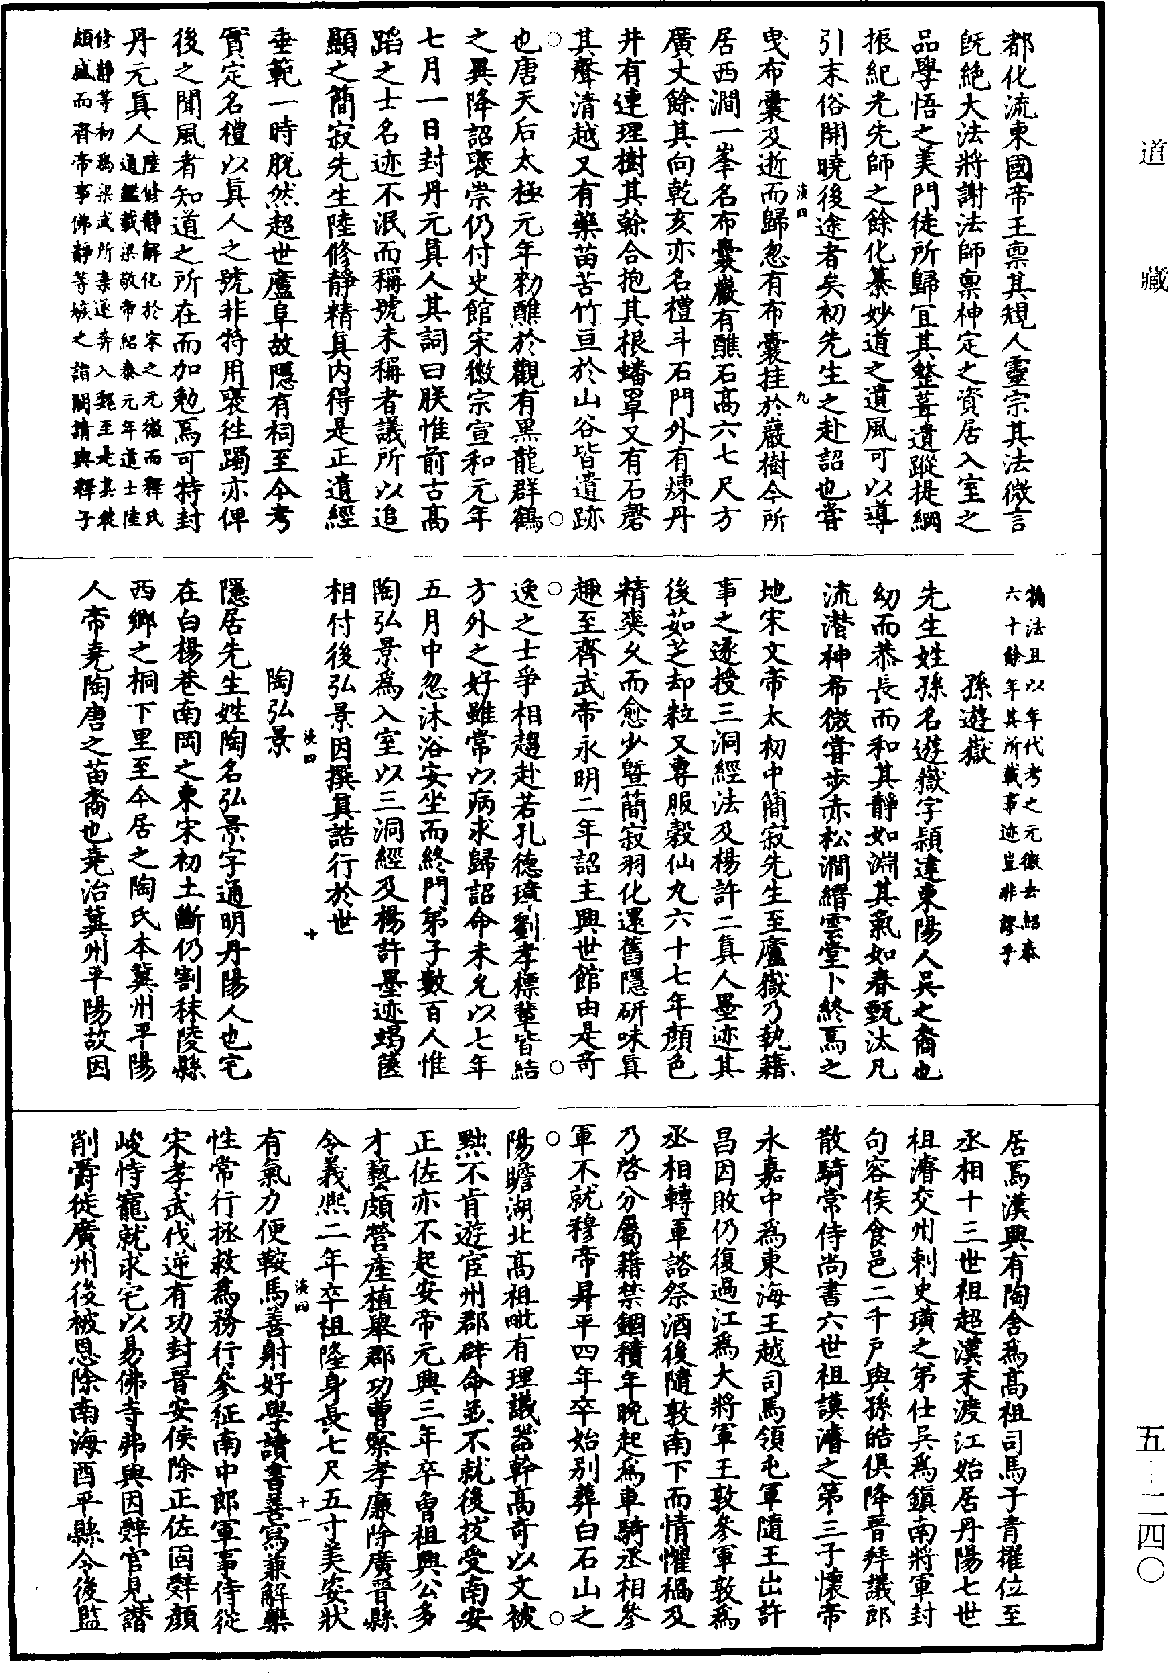 道藏
五‧二四〇
都化流東國帝王稟其規人靈宗其法微言
既絕大法將謝法師稟神定之資居入室之
品學悟之美門徒所歸宜其整葺遺蹤提綱
振紀光先師之餘化纂妙道之遺風可以導
引末俗開曉後途者矣初先生之赴詔也嘗
曳布囊及逝而歸忽有布囊挂於巖樹今所
居西澗一峯名布囊巖有醮石高六七尺方
廣丈餘其向乾亥亦名禮斗石門外有煉丹
井有連理樹其榦合抱其根蟠罩又有石磬
其聲清越又有藥苗苦竹亘於山谷皆遺跡
也唐天后太極元年勑醮於觀有黑龍群鶴
之異降詔褒崇仍付史館宋徽宗宣和元年
七月一日封丹元真人其詞曰朕惟前古高
蹈之士名迹不泯而稱號未稱者議所以追
顯之簡寂先生陸修靜精真內得是正遺經
垂範一時脫然超世廬阜故隱有祠至今考
實定名禮以真人之號非特用褒往躅亦俾
後之聞風者知道之所在而加勉焉可特封
丹元真人陸修靜解化於宋之元徽而釋氏
通鑑載梁敬帝紹泰元年道士陸
修靜等初為梁武所棄遂奔入魏至是其徒
頗盛而齊帝事佛靜等嫉之詣闕請與釋子
演四
九
桷法且以年代考之元徽去紹泰
六十餘年其所載事迹豈非謬乎
孫遊嶽
先生姓孫名遊嶽字穎達東陽人吳之裔也
幼而恭長而和其靜如淵其氣如春甄汰凡
流潛神希微嘗步赤松澗縉雲堂卜終焉之
地宋文帝太初中簡寂先生至廬嶽乃執籍
事之遂授三洞經法及楊許二真人墨迹其
後茹芝却粒又專服穀仙丸六十七年顏色
精爽久而愈少暨簡寂羽化還舊隱研味真
趣至齊武帝永明二年詔主興世館由是奇
逸之士爭相趨赴若孔德璋劉孝標輩皆結
方外之好雖常以病求歸詔命未允以七年
五月中忽沐浴安坐而終門弟子數百人惟
陶弘景為入室以三洞經及楊許墨迹蝎篋
相付後弘景因撰真誥行於世
演四
十
陶弘景
隱居先生姓陶名弘景字通明丹陽人也宅
在白楊巷南岡之東宋初土斷仍割秣陵縣
西鄉之桐下里至今居之陶氏本冀州平陽
人帝堯陶唐之苗裔也堯治冀州平陽故因
居焉漢興有陶舍為高祖司馬子青擢位至
丞相十三世祖超漢末渡江始居丹陽七世
祖濬交州刺史璜之弟仕吳為鎮南將軍封
句容侯食邑二千戶與孫皓俱降晉拜議郎
散騎常侍尚書六世祖謨濬之第三子懷帝
永嘉中為東海王越司馬領屯軍隨王出許
昌因敗仍復過江為大將軍王敦參軍敦為
丞相轉軍諮祭酒後隨敦南下而情懼禍及
乃啓分屬籍禁錮積年晚起為車騎丞相參
軍不就穆帝昇平四年卒始別葬白石山之
陽瞻湖北高祖毗有理識器幹高奇以文被
黜不肯遊宦州郡辟命並不就後扳受南安
正佐亦不起安帝元興三年卒曾祖興公多
才藝頗營產植舉郡功曹察孝廉除廣晉縣
令義熙二年卒祖隆身長七尺五寸美姿狀
有氣力便鞍馬善射好學讀書善寫兼解藥
性常行拯救為務行參征南中郎軍事侍從
宋孝武伐逆有功封晉安侯除正佐固辭顏
峻恃寵就求宅以易佛寺弗與因辭官見譖
削爵徙廣州後被恩除南海酉平縣令後監
演四
十一